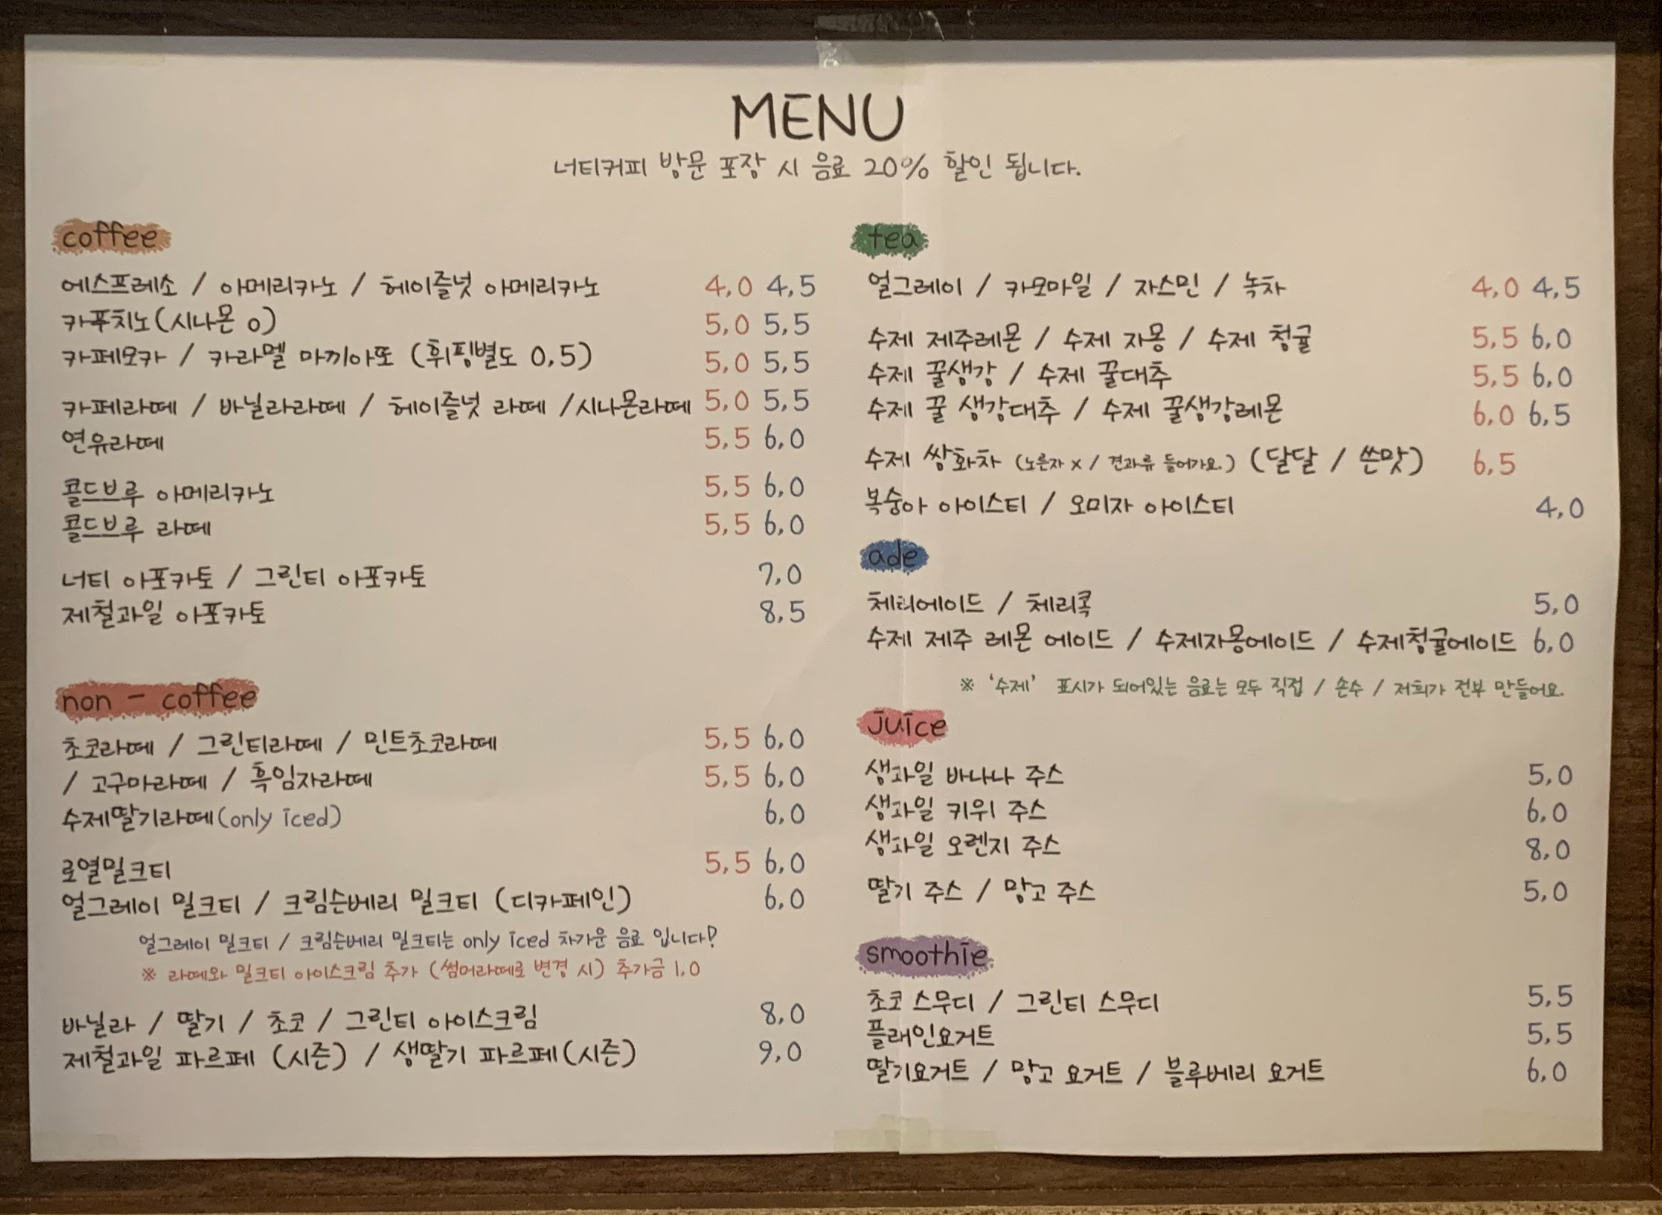 MENU
너티커피 방문 포장 시 음료 20% 할인 됩니다.
coffee
에스프레소 / 아메리카노 / 헤이즐넛 아메리카노 4,0 4,5
카푸치노(시나몬 o) 5,0 5,5
카페모카 / 카라멜 마끼아또 (휘핑별도 0,5) 5,0 5,5
카페라떼 / 바닐라라떼 / 헤이즐넛 라떼 /시나몬라떼 5,0 5,5
연유라떼 5,5 6,0
콜드브루 아메리카노 5,5 6,0
콜드브루 라떼 5,5 6,0
너티 아포카토 / 그린티 아포카토 7,0
제철과일 아포카토 8,5
non - coffee
초코라떼 / 그린티라떼 / 민트초코라떼 5,5 6,0
/ 고구마라떼 / 흑임자라떼 5,5 6,0
수제딸기라떼(only iced) 6,0
로열밀크티 5,5 6,0
얼그레이 밀크티 / 크림슨베리 밀크티 (디카페인) 6,0
얼그레이 밀크티 / 크림슨베리 밀크티는 only iced 차가운 음료 입니다!
※ 라떼와 밀크티 아이스크림 추가 (썸머라떼로 변경 시) 추가금 1,0
바닐라 / 딸기 / 초코 / 그린티 아이스크림 8,0
제철과일 파르페 (시즌) / 생딸기 파르페(시즌) 9,0
tea
얼그레이 / 카모마일 / 자스민 / 녹차 4,0 4,5
수제 제주레몬 / 수제 자몽 / 수제 청귤 5,5 6,0
수제 꿀생강 / 수제 꿀대추 5,5 6,0
수제 꿀 생강대추 / 수제 꿀생강레몬 6,0 6,5
수제 쌍화차 (노른자 x / 견과류 들어가요.) (달달 / 쓴맛) 6,5
복숭아 아이스티 / 오미자 아이스티 4,0
ade
체리에이드 / 체리콕 5,0
수제 제주 레몬 에이드 / 수제자몽에이드 / 수제청귤에이드 6,0
※ '수제' 표시가 되어있는 음료는 모두 직접 / 손수 / 저희가 전부 만들어요.
juice
생과일 바나나 주스 5,0
생과일 키위 주스 6,0
생과일 오렌지 주스 8,0
딸기 주스 / 망고 주스 5,0
smoothie
초코 스무디 / 그린티 스무디 5,5
플래인요거트 5,5
딸기요거트 / 망고 요거트 / 블루베리 요거트 6,0